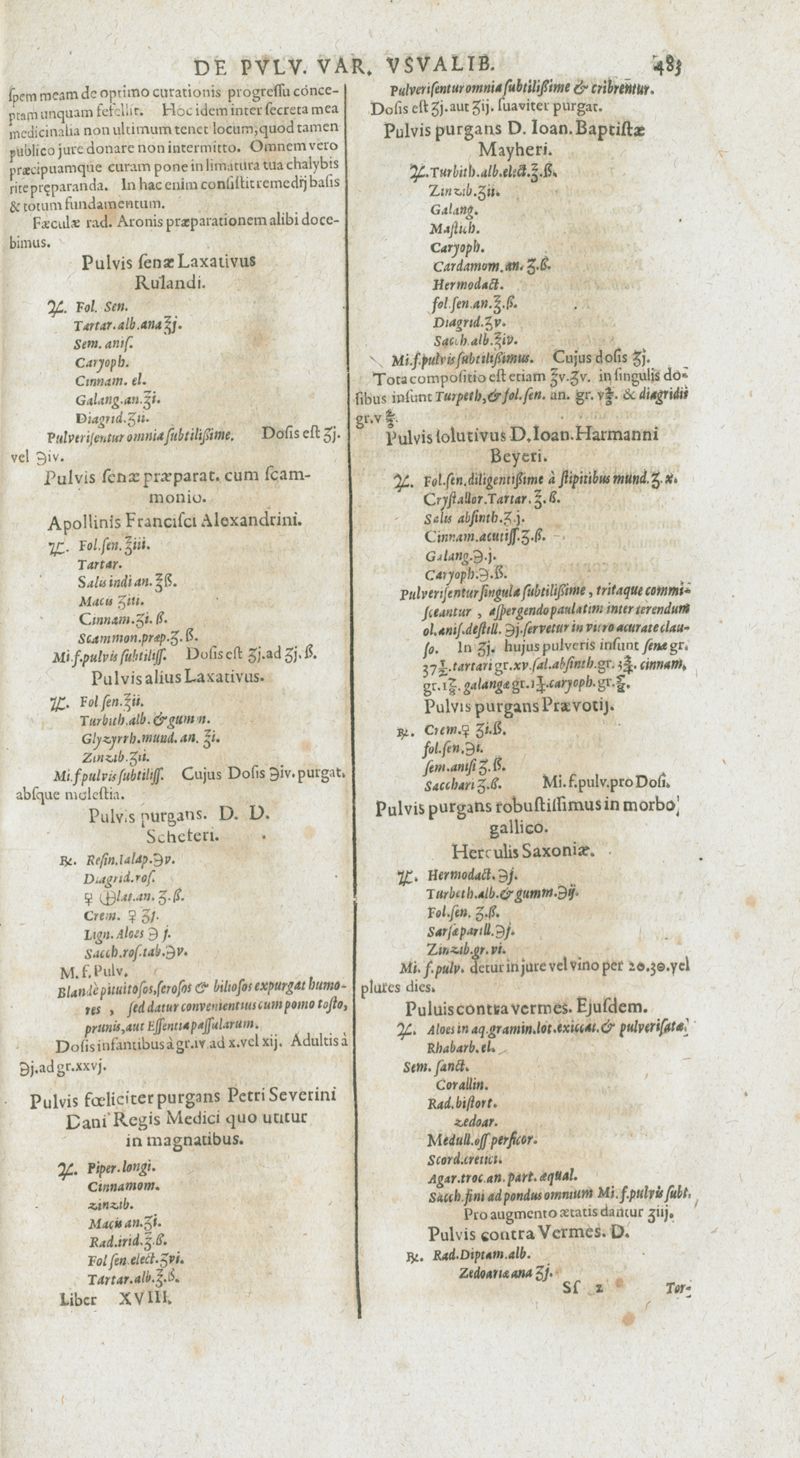 DE PVLV. VAR. VSVALIB. 483
ſpem meam de optimo curationis progreſſu conce-
ptam unquam fefellit. Hoc idem inter ſecreta mea
medicinalia non ultimum tenet locum, quod tamen
publico jure donare non intermitto. Omnem vero
præcipuamque curam pone in limatura tua chalybis
rite pręparanda. In hac enim conſiſtit remedij baſis
& totum fundamentum.
Fæculæ rad. Aronis præparationem alibi doce-
bimus.
Pulvis ſenæ Laxativus
Rulandi.
♃. Fol. Sen.
Tartar. alb. ana ℥j.
Sem. aniſ.
Caryoph.
Cinnam. el.
Galang. an. ℥i.
Diagrid. ʒii.
Pulveriſentur omnia ſubtilißime. Doſis eſt ʒj.
vel ℈iv.
Pulvis ſenæ præparat. cum ſcam-
monio.
Apollinis Franciſci Alexandrini.
♃. Fol. ſen. ℥iii.
Tartar.
Salis indi an. ℥ß.
Macis ʒiii.
Cinnam. ʒi. ß.
Scammon. præp. ʒ. ß.
Mi. f. pulvis ſubtiliſſ. Doſis eſt ʒj. ad ʒj. ß.
Pulvis alius Laxativus.
♃. Fol ſen. ℥ii.
Turbith. alb. & gumm.
Glyzyrrh. mund. an. ℥i.
Zinzib. ʒii.
Mi. f pulvis ſubtiliſſ. Cujus Doſis ℈iv. purgat.
abſque moleſtia.
Pulvis purgans. D. D.
Scheteri.
℞. Reſin. Ialap. ℈v.
Diagrid. roſ.
Crem. ♀ ʒj.
Lign. Aloes ℈ j.
Sacch. roſ. tab. ℈v.
M. f. Pulv.
Blandè pituitoſos, ſeroſos & bilioſos expurgat humo-
res , ſed datur convenientius cum pomo toſto,
prunis, aut Eſſentia paſſularum.
Doſis infantibus à gr. iv. ad x. vel xij. Adultis à
℈j. ad gr. xxvj.
Pulvis fœliciter purgans Petri Severini
Dani Regis Medici quo utitur
in magnatibus.
♃. Piper. longi.
Cinnamom.
zinzib.
Macis an. ʒi.
Rad. irid. ʒ. ß.
Fol ſen. elect. ʒvi.
Tartar. alb. ʒ. ß.
Liber XVIII.
Pulveriſentur omnia ſubtilißime & cribrentur.
Doſis eſt ʒj. aut ʒij. ſuaviter purgat.
Pulvis purgans D. Ioan. Baptiſtæ
Mayheri.
♃. Turbith. alb. elect. ℥. ß.
Zinzib. ʒii.
Galang.
Maſtich.
Caryoph.
Cardamom. an. ʒ. ß.
Hermodact.
fol. ſen. an. ℥. ß.
Diagrid. ʒv.
Sacch. alb. ℥iv.
Mi. f. pulvis ſubtilißimus. Cujus doſis ʒj.
Tota compoſitio eſt etiam ℥v. ʒv. in ſingulis do-
ſibus inſunt Turpeth, & fol. ſen. an. gr. & diagridii
gr. v
Pulvis ſolutivus D. Ioan. Harmanni
Beyeri.
♃. Fol. ſen. diligentißime à ſtipitibus mund. ʒ. x.
Cryſtallor. Tartar. ℥. ß.
Salis abſinth. ʒ. j.
Cinnam. acutiſſ. ʒ. ß.
Galang. ℈. j.
Caryoph. ℈. ß.
Pulveriſentur ſingula ſubtilißime , tritaque commi-
ſceantur , aſpergendo paulatim inter terendum
ol. aniſ. deſtill. ℈j. ſervetur in vitro acurate clau-
ſo. In ʒj. hujus pulveris inſunt ſenæ gr.
37 ½. tartari gr. xv. ſal. abſinth. gr. 3 ¾. cinnam.
galangæ caryoph.
Pulvis purgans Prævotij.
℞. Crem. ♀ ʒi. ß.
fol. ſen. ℈i.
ſem. aniſi ʒ. ß.
Sacchari ʒ. ß. Mi. f. pulv. pro Doſi.
Pulvis purgans robuſtiſſimus in morbo
gallico.
Herculis Saxoniæ.
♃. Hermodact. ℈j.
Turbeth. alb. & gumm. ℈ij.
Fol. ſen. ʒ. ß.
Sarſæ parill. ℈j.
Zinzib. gr. vi.
Mi. f. pulv. detur in jure vel vino per 20. 30. vel
plures dies.
Puluis contra vermes. Ejuſdem.
♃. Aloes in aq. gramin. lot. exiccat. & pulveriſatæ
Rhabarb. el.
Sem. ſanct.
Corallin.
Rad. biſtort.
zedoar.
Medull. oſſ perſicor.
Scord. cretici.
Agar. troc. an. part. æqual.
Sacch. fini ad pondus omnium Mi. f. pulvis ſubt.
Pro augmento ætatis dantur ʒiij.
Pulvis contra Vermes. D.
℞. Rad. Diptam. alb.
Zedoariæ ana ʒj.
Sſ 2 Tor-